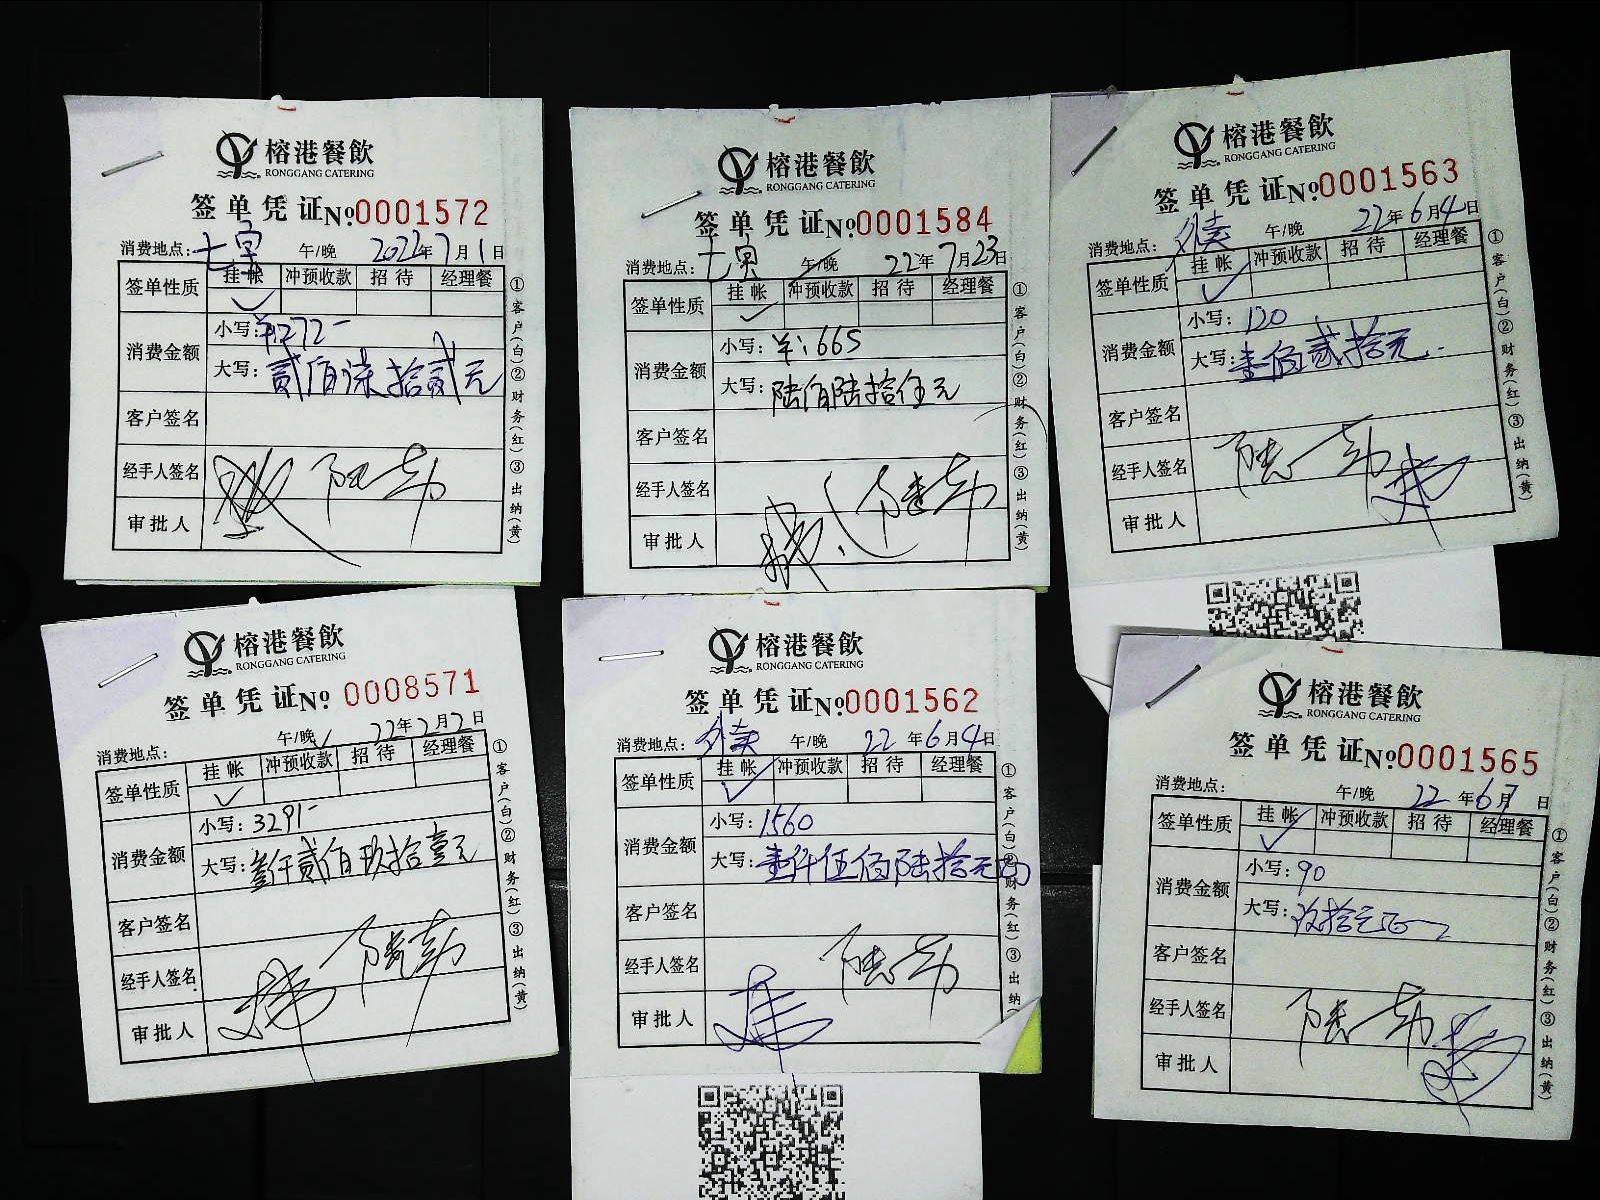 榕港餐飲
RONGGANG CATERING
签单凭证 №0001572
消费地点: 午/晚 2022年7月1日
签单性质 挂帐 冲预收款 招待 经理餐
✓
消费金额 小写:¥272-
大写:贰佰柒拾贰元
客户签名
经手人签名
审批人
①客户(白)②财务(红)③出纳(黄)
榕港餐飲
RONGGANG CATERING
签单凭证 №0001584
消费地点: 午/晚 22年7月23日
签单性质 挂帐 冲预收款 招待 经理餐
✓
消费金额 小写:¥:665
大写:陆佰陆拾伍元
客户签名
经手人签名
审批人
①客户(白)②财务(红)③出纳(黄)
榕港餐飲
RONGGANG CATERING
签单凭证 №0001563
消费地点:外卖 午/晚 22年6月4日
签单性质 挂帐 冲预收款 招待 经理餐
✓
消费金额 小写:120
大写:壹佰贰拾元
客户签名
经手人签名
审批人
①客户(白)②财务(红)③出纳(黄)
榕港餐飲
RONGGANG CATERING
签单凭证 №0008571
消费地点: 午/晚✓ 22年2月2日
签单性质 挂帐 冲预收款 招待 经理餐
✓
消费金额 小写:3291-
大写:叁仟贰佰玖拾壹元
客户签名
经手人签名
审批人
①客户(白)②财务(红)③出纳(黄)
榕港餐飲
RONGGANG CATERING
签单凭证 №0001562
消费地点:外卖 午/晚 22年6月4日
签单性质 挂帐 冲预收款 招待 经理餐
✓
消费金额 小写:1560
大写:壹仟伍佰陆拾元
客户签名
经手人签名
审批人
①客户(白)②财务(红)③出纳
榕港餐飲
RONGGANG CATERING
签单凭证 №0001565
消费地点: 午/晚 22年6月7日
签单性质 挂帐 冲预收款 招待 经理餐
✓
消费金额 小写:90
大写:玖拾元
客户签名
经手人签名
审批人
①客户(白)②财务(红)③出纳(黄)